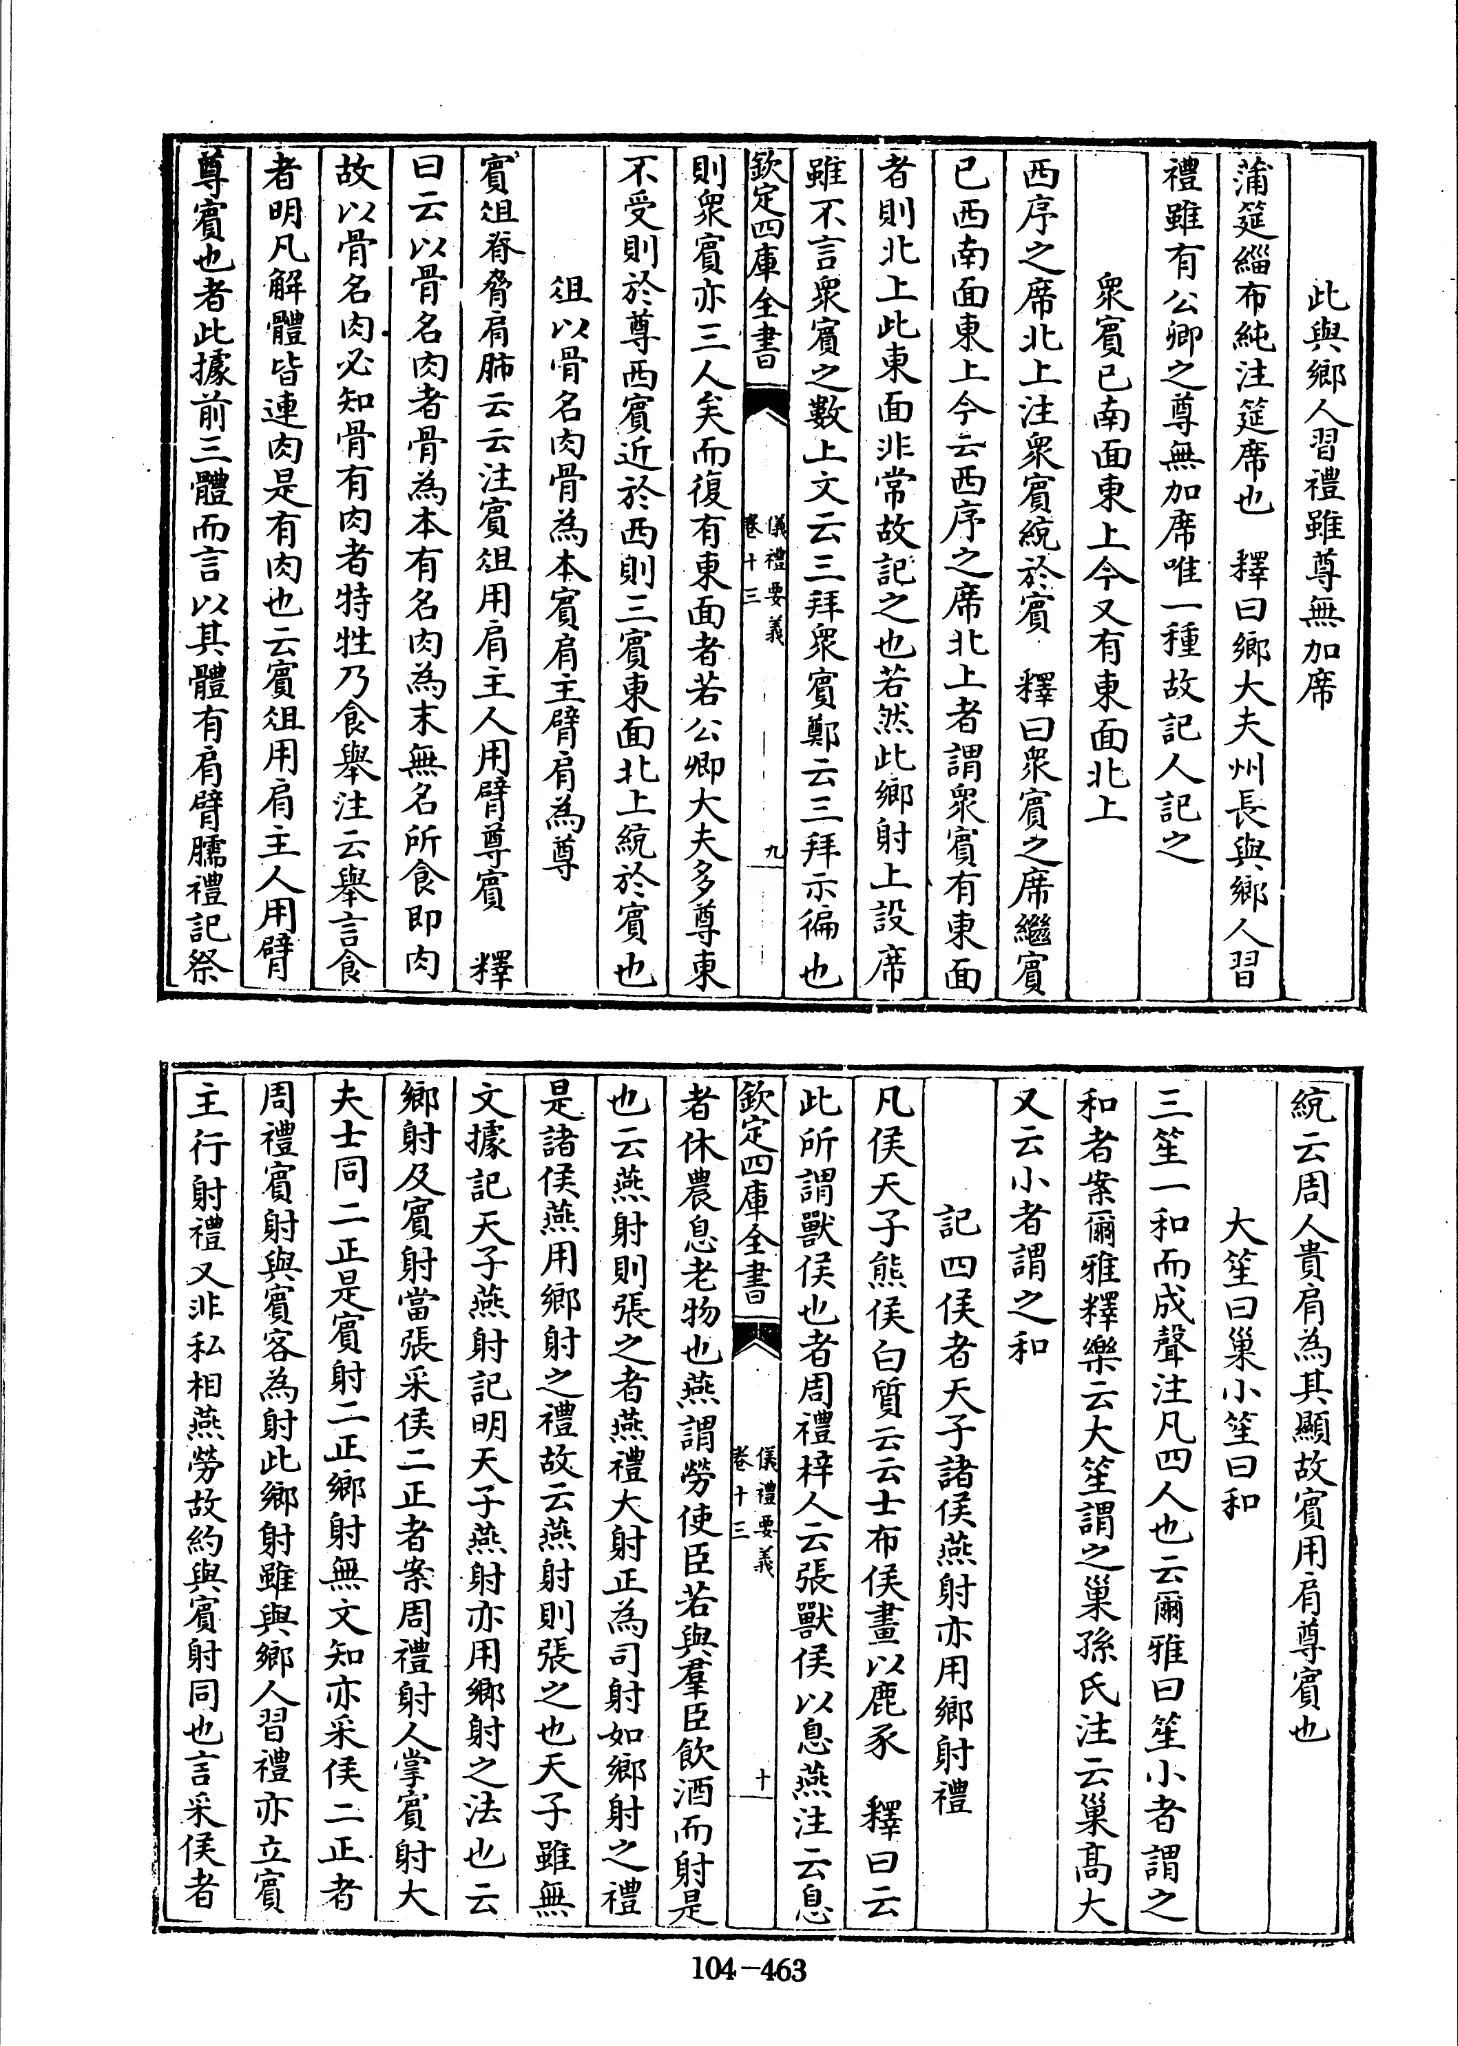 此與鄉人習禮雖尊無加席
蒲筵緇布純注筵席也　釋曰鄉大夫州長與鄉人習
禮雖有公卿之尊無加席唯一種故記人記之
衆賔已南面東上今又有東面北上
西序之席北上注衆賔統於賔　釋曰衆賔之席繼賔
已西南面東上今云西序之席北上者謂衆賔有東面
者則北上此東面非常故記之也若然此鄉射上設席
雖不言衆賔之數上文云三拜衆賔鄭云三拜示徧也
欽定四庫全書
儀禮要義
卷十三
九
則衆賔亦三人矣而復有東面者若公卿大夫多尊東
不受則於尊西賔近於西則三賔東面北上統於賔也
俎以骨名肉骨為本賔肩主臂肩為尊
賔俎脊脅肩肺云云注賔俎用肩主人用臂尊賔　釋
曰云以骨名肉者骨為本有名肉為末無名所食即肉
故以骨名肉必知骨有肉者特牲乃食舉注云舉言食
者明凡解體皆連肉是有肉也云賔俎用肩主人用臂
尊賔也者此據前三體而言以其體有肩臂臑禮記祭
統云周人貴肩為其顯故賔用肩尊賔也
大笙曰巢小笙曰和
三笙一和而成聲注凡四人也云爾雅曰笙小者謂之
和者案爾雅釋樂云大笙謂之巢孫氏注云巢髙大
又云小者謂之和
記四侯者天子諸侯燕射亦用鄉射禮
凡侯天子熊侯白質云云士布侯畫以鹿豕　釋曰云
此所謂獸侯也者周禮梓人云張獸侯以息燕注云息
欽定四庫全書
儀禮要義
卷十三
十
者休農息老物也燕謂勞使臣若與羣臣飲酒而射是
也云燕射則張之者燕禮大射正為司射如鄉射之禮
是諸侯燕用鄉射之禮故云燕射則張之也天子雖無
文據記天子燕射記明天子燕射亦用鄉射之法也云
鄉射及賔射當張采侯二正者案周禮射人掌賔射大
夫士同二正是賔射二正鄉射無文知亦采侯二正者
周禮賔射與賔客為射此鄉射雖與鄉人習禮亦立賔
主行射禮又非私相燕勞故約與賔射同也言采侯者
104-463